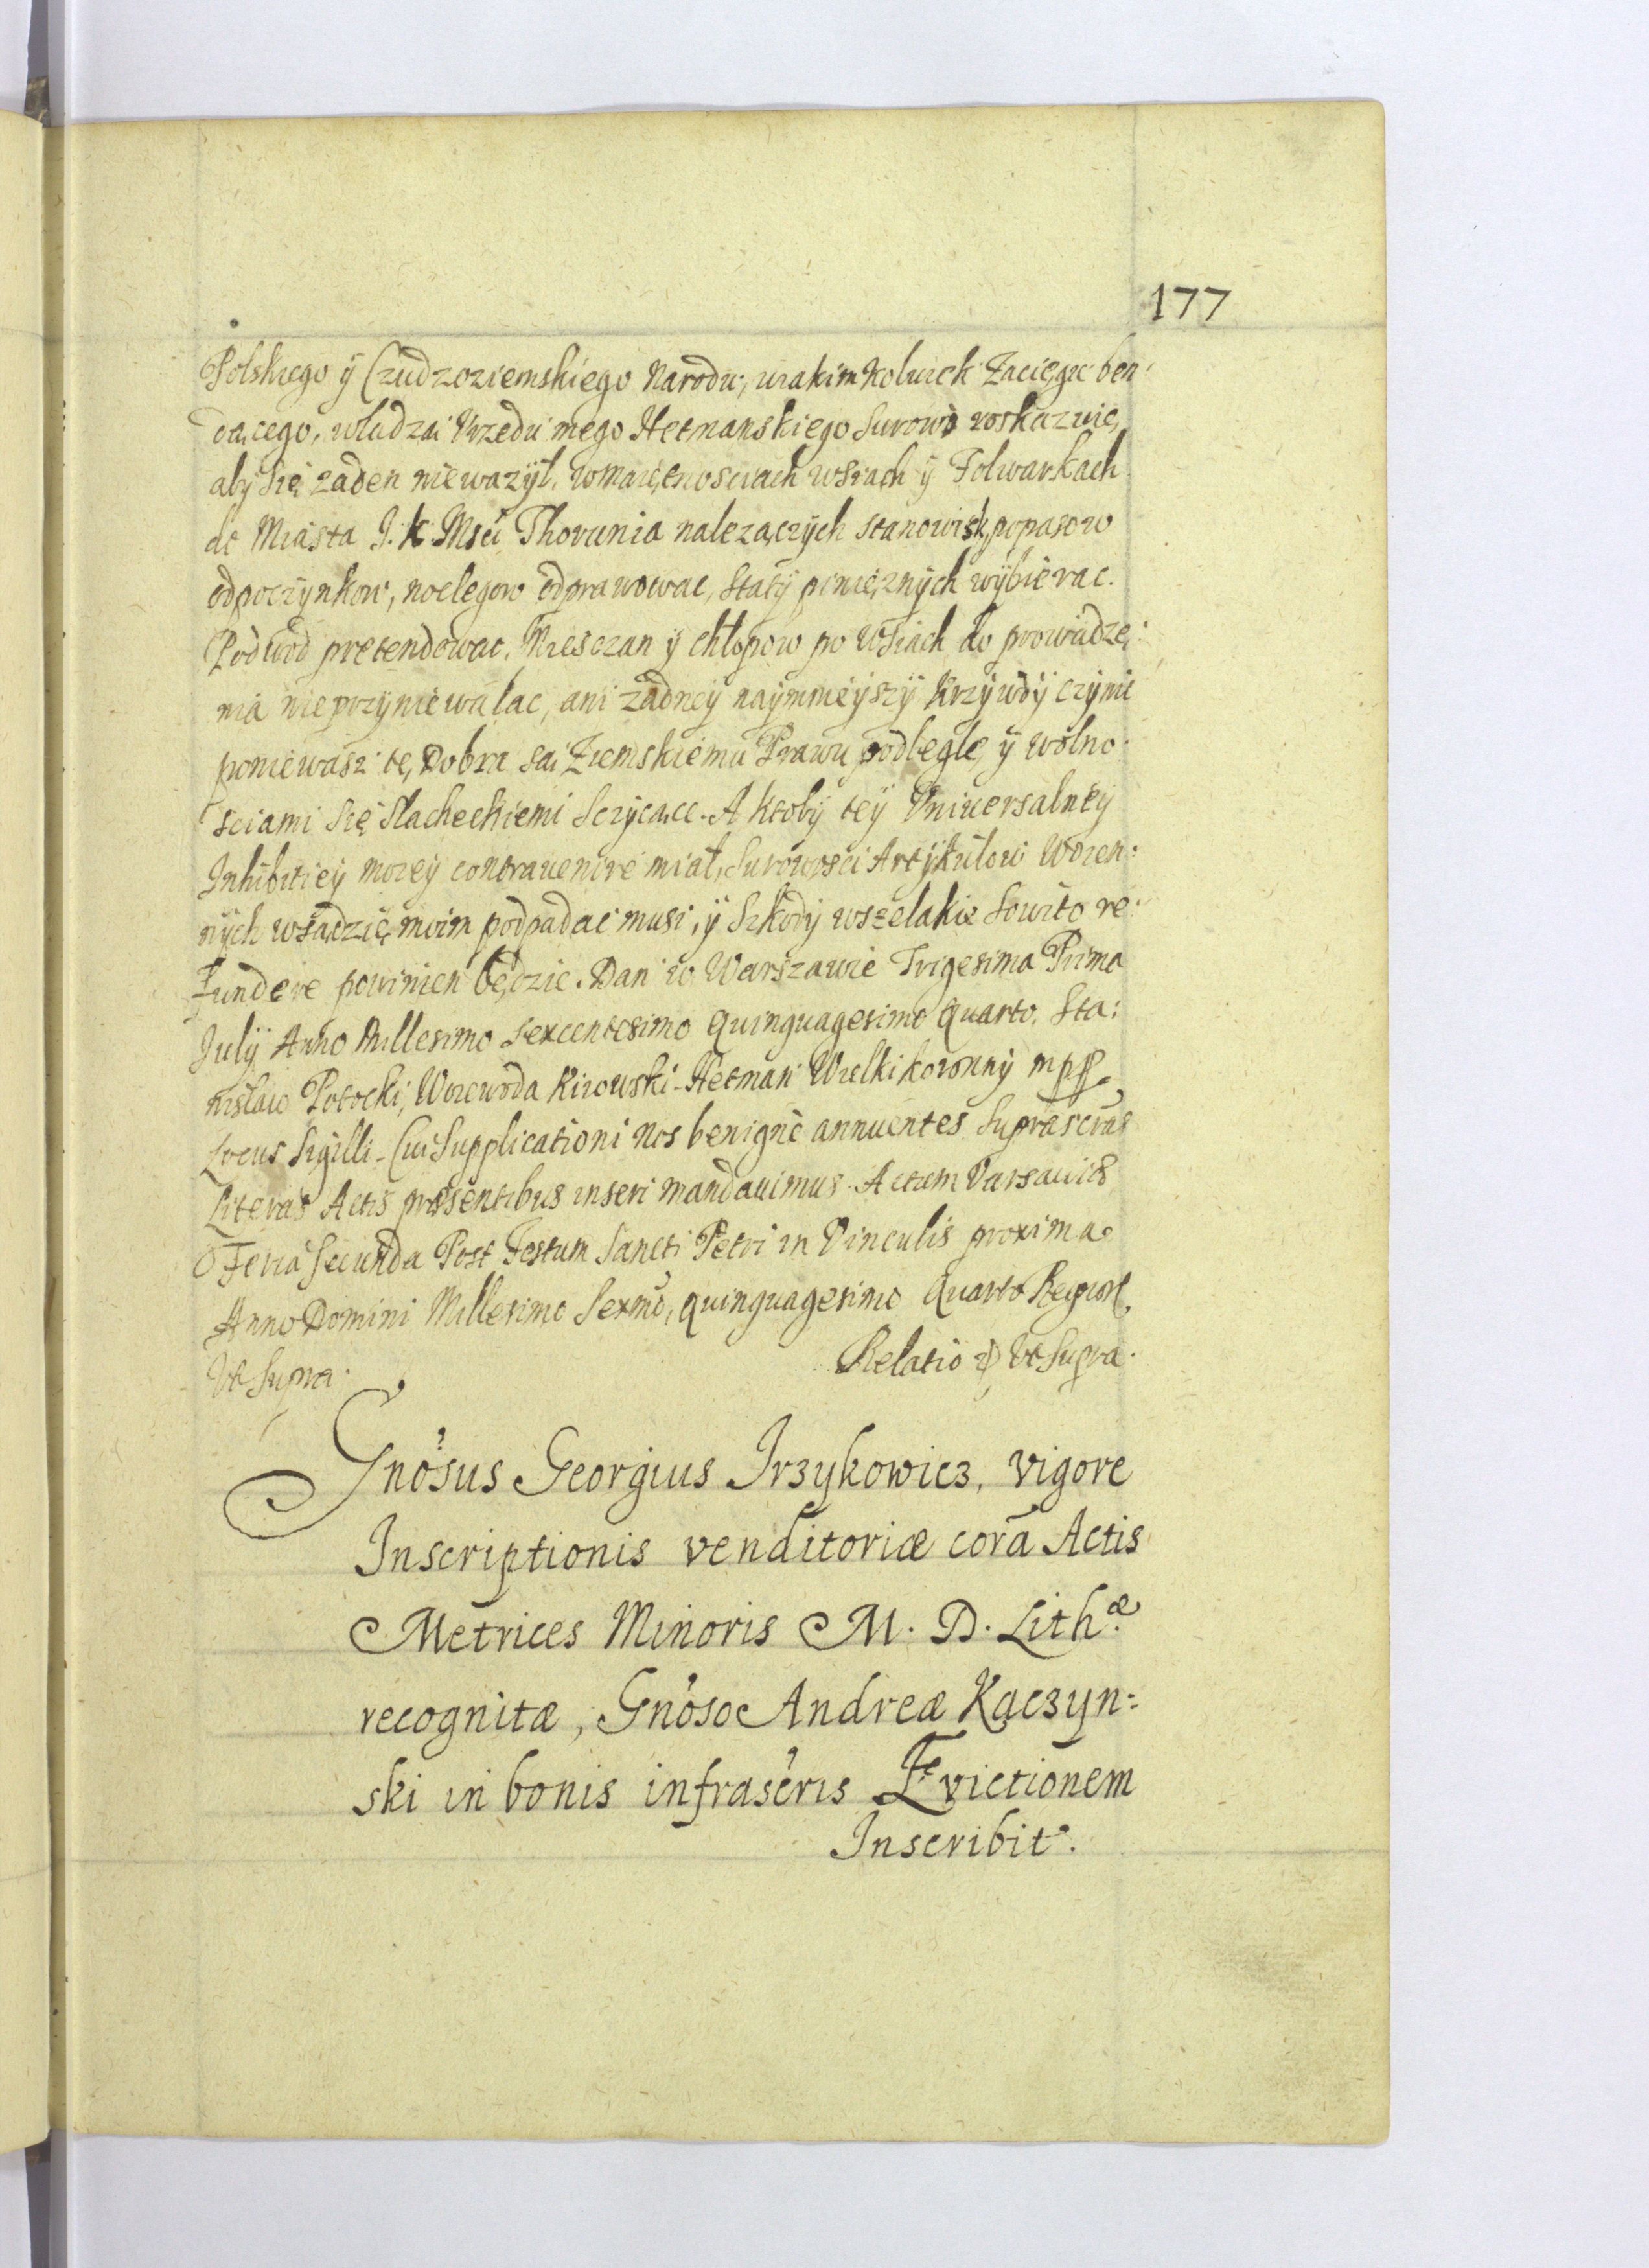 177
Polskiego ÿ Czudzoziemskiego Narodu, wiakimkolwiek Zacięgu ben:
dącego, władzą Vrzędu mego Hetmanskiego Surowo roskazuię,
aby się zaden nieważył, w maiętnosciach wsiach ÿ Folwarkach
do Miasta J. K. Msći Thorunia należączÿch stanowisk, popasow
odpoczÿnkow, noclegow odprawowac, Stacÿ pieniężnÿch wÿbierac.
Podwod pretendowac, Miesczan ÿ chłopow po Wsiach do prowadze:
nia nieprzyniewalac, ani żadneÿ naÿmnieÿszÿ Krzÿwdÿ czÿnic
poniewasz te, Dobra są Ziemskiemu Prawu podległe, ÿ wolno:
sciami Się Slacheckiemi Sczÿcące. A ktobÿ teÿ Vniuersalneÿ
Inhibitieÿ moieÿ contrauenire miał, Surowosci Artÿkułow Woien:
nÿch wsądzie moim podpadac musi, ÿ Szkodÿ wszelakie Sowito re:
fundere powinien będzie. Dan w Warszawie Trigesima Prima
Julÿ Anno Millesimo Sexcentesimo Quinquagesimo Quarto. Sta:
nisław Potocki, Woiewoda Kiiowski Hetman Wielki koronnÿ mpp.
Locus Sigilli. Cui Supplicationi Nos benignè annuentes Suprascrăs
Literas Actis præsentibus inseri mandauimus. Actum Varsauiæ
Feria Secunda Post Festum Sancti Petri in Vinculis proxima
Anno Domini Millesimo Sexmõ, quinquagesimo Quarto Regnort,
Vt Supra. Relatio Vt Supra.
Gnosus Georgius Jrzykowicz, vigore
Inscriptionis venditoriæ corã Actis
Metrices Minoris M. D. Lith.æ
recognitæ, Gnoso Andreæ Kaczyn:
ski in bonis infrascris Evictionem
Inscribit.